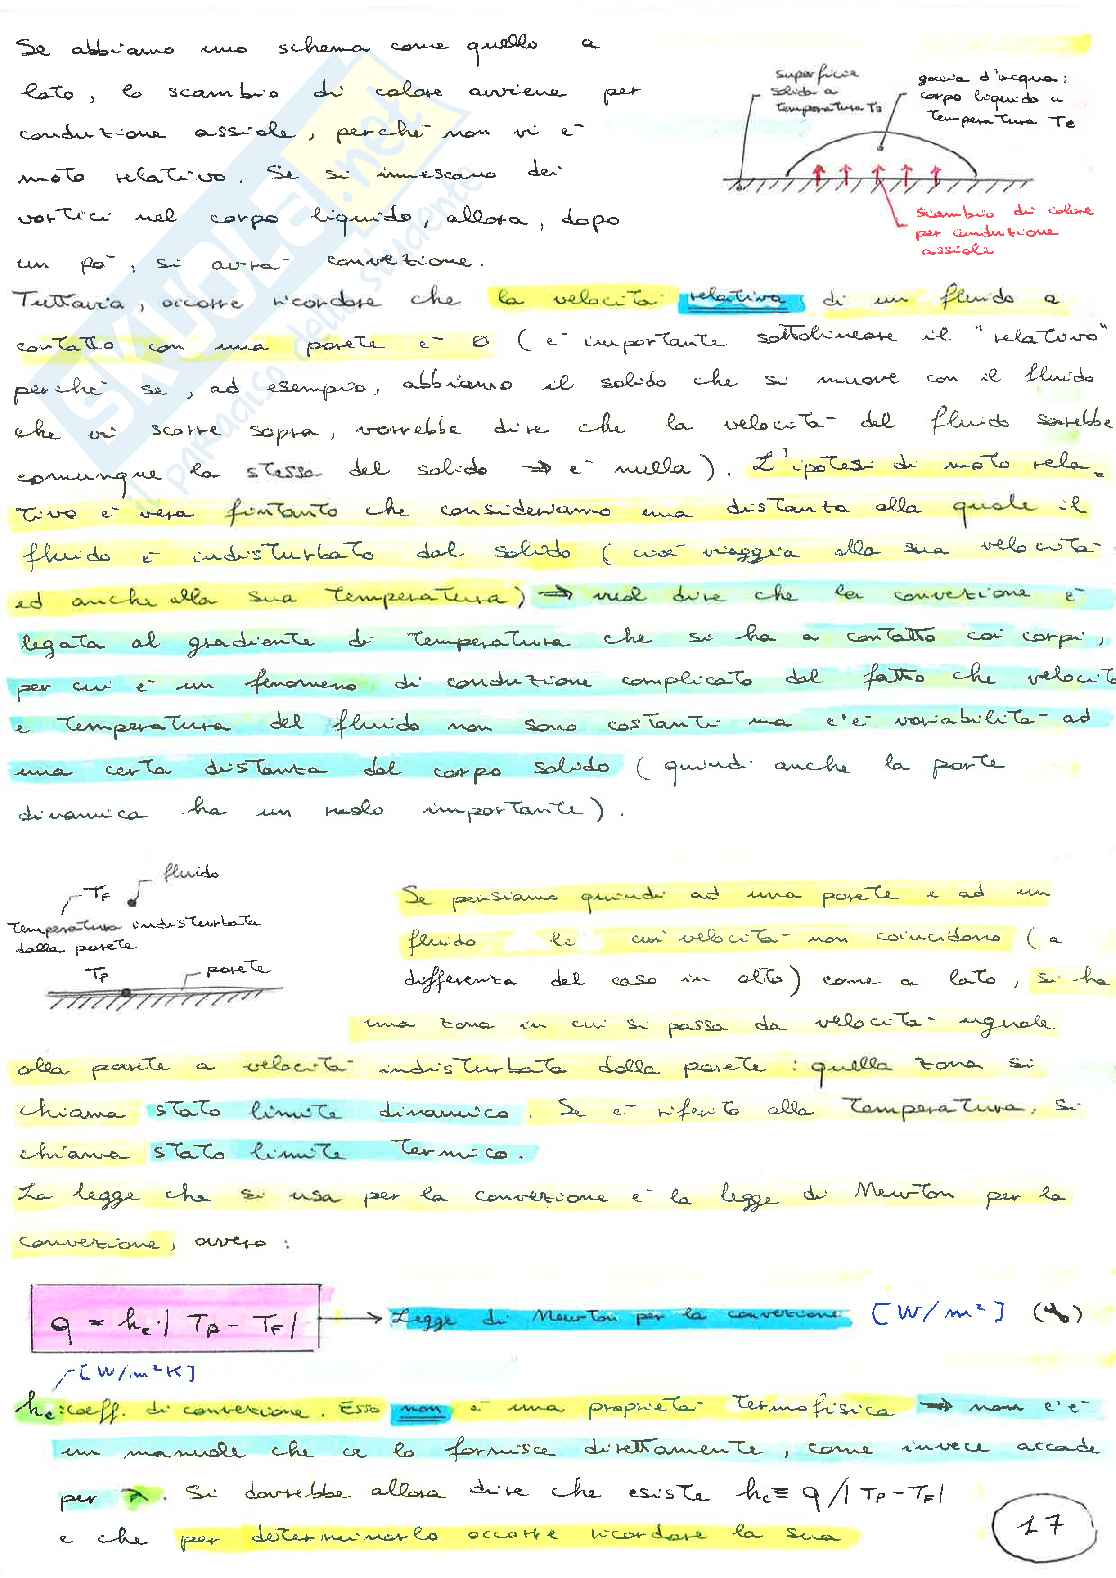 Se abbiamo uno schema come quello a
lato, lo scambio di calore avviene per
conduzione assiale, perché non vi è
moto relativo. Se si innescano dei
vortici nel corpo liquido, allora, dopo
un pò, si avrà convezione.
superficie
solida a
temperatura Ts
goccia d'acqua:
corpo liquido a
temperatura Te
scambio di calore
per conduzione
assiale
Tuttavia, occorre ricordare che la velocità relativa di un fluido a
contatto con una parete è 0 (è importante sottolineare il "relativo"
perché se, ad esempio, abbiamo il solido che si muove con il fluido
che vi scorre sopra, vorrebbe dire che la velocità del fluido sarebbe
comunque la stessa del solido → è nulla). L'ipotesi di moto rela-
tivo è vera fintanto che consideriamo una distanza alla quale il
fluido è indisturbato dal solido (cioè viaggia alla sua velocità
ed anche alla sua temperatura) → vuol dire che la convezione è
legata al gradiente di temperatura che si ha a contatto coi corpi,
per cui è un fenomeno di conduzione complicato dal fatto che velocità
e temperatura del fluido non sono costanti ma c'è variabilità ad
una certa distanza dal corpo solido (quindi anche la parte
dinamica ha un ruolo importante).
fluido
TF
temperatura indisturbata
dalla parete
TP
parete
Se pensiamo quindi ad una parete e ad un
fluido le cui velocità non coincidono (a
differenza del caso in alto) come a lato, si ha
una zona in cui si passa da velocità uguale
alla parete a velocità indisturbata dalla parete: quella zona si
chiama stato limite dinamico. Se è riferito alla temperatura, si
chiama stato limite termico.
La legge che si usa per la convezione è la legge di Newton per la
convezione, ovvero:
q = hc·|TP - TF| → Legge di Newton per la convezione [W/m²]
[W/m²K]
hc: coeff. di convezione. Esso non è una proprietà termofisica → non c'è
un manuale che ce lo fornisce direttamente, come invece accade
per λ. Si dovrebbe allora dire che esiste hc = q/|TP - TF|
e che per determinarlo occorre ricordare la sua
17